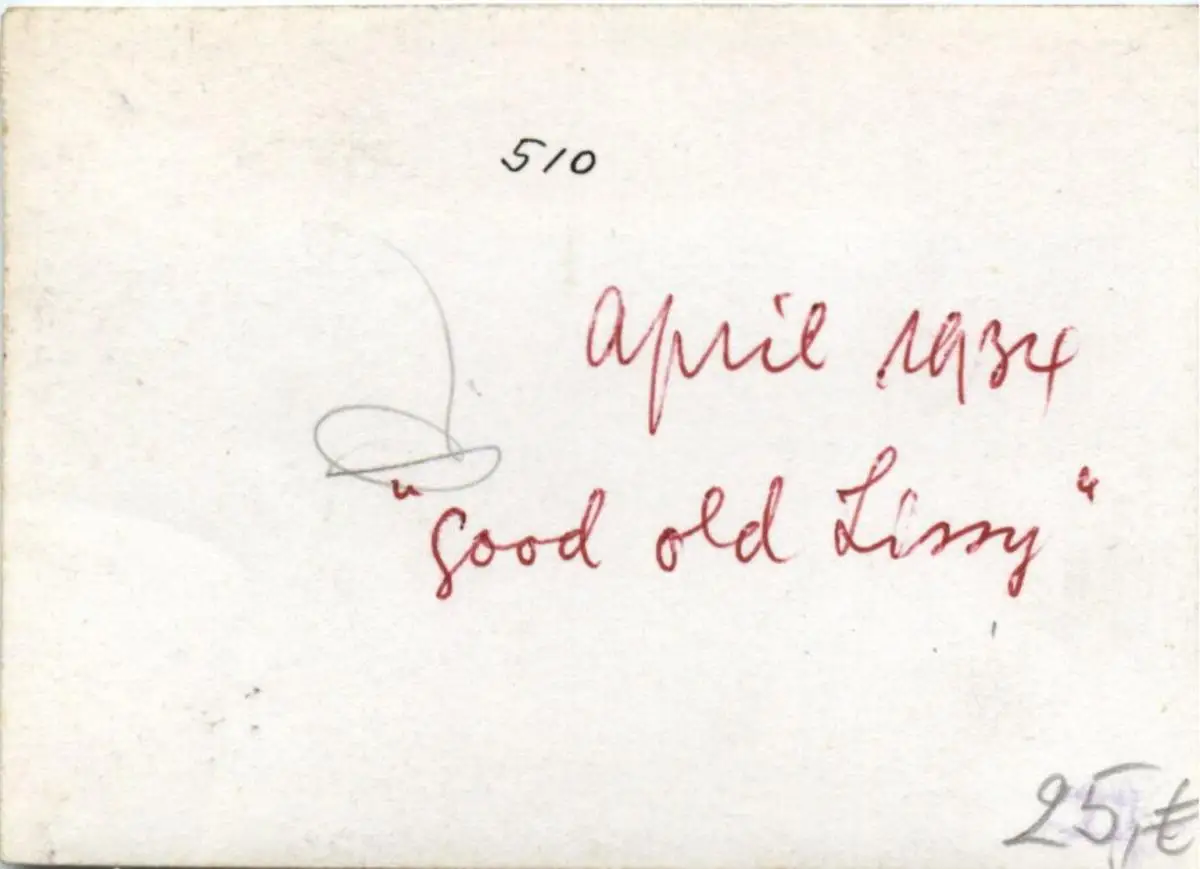 510
April 1934
"good old Lissy"
25,€